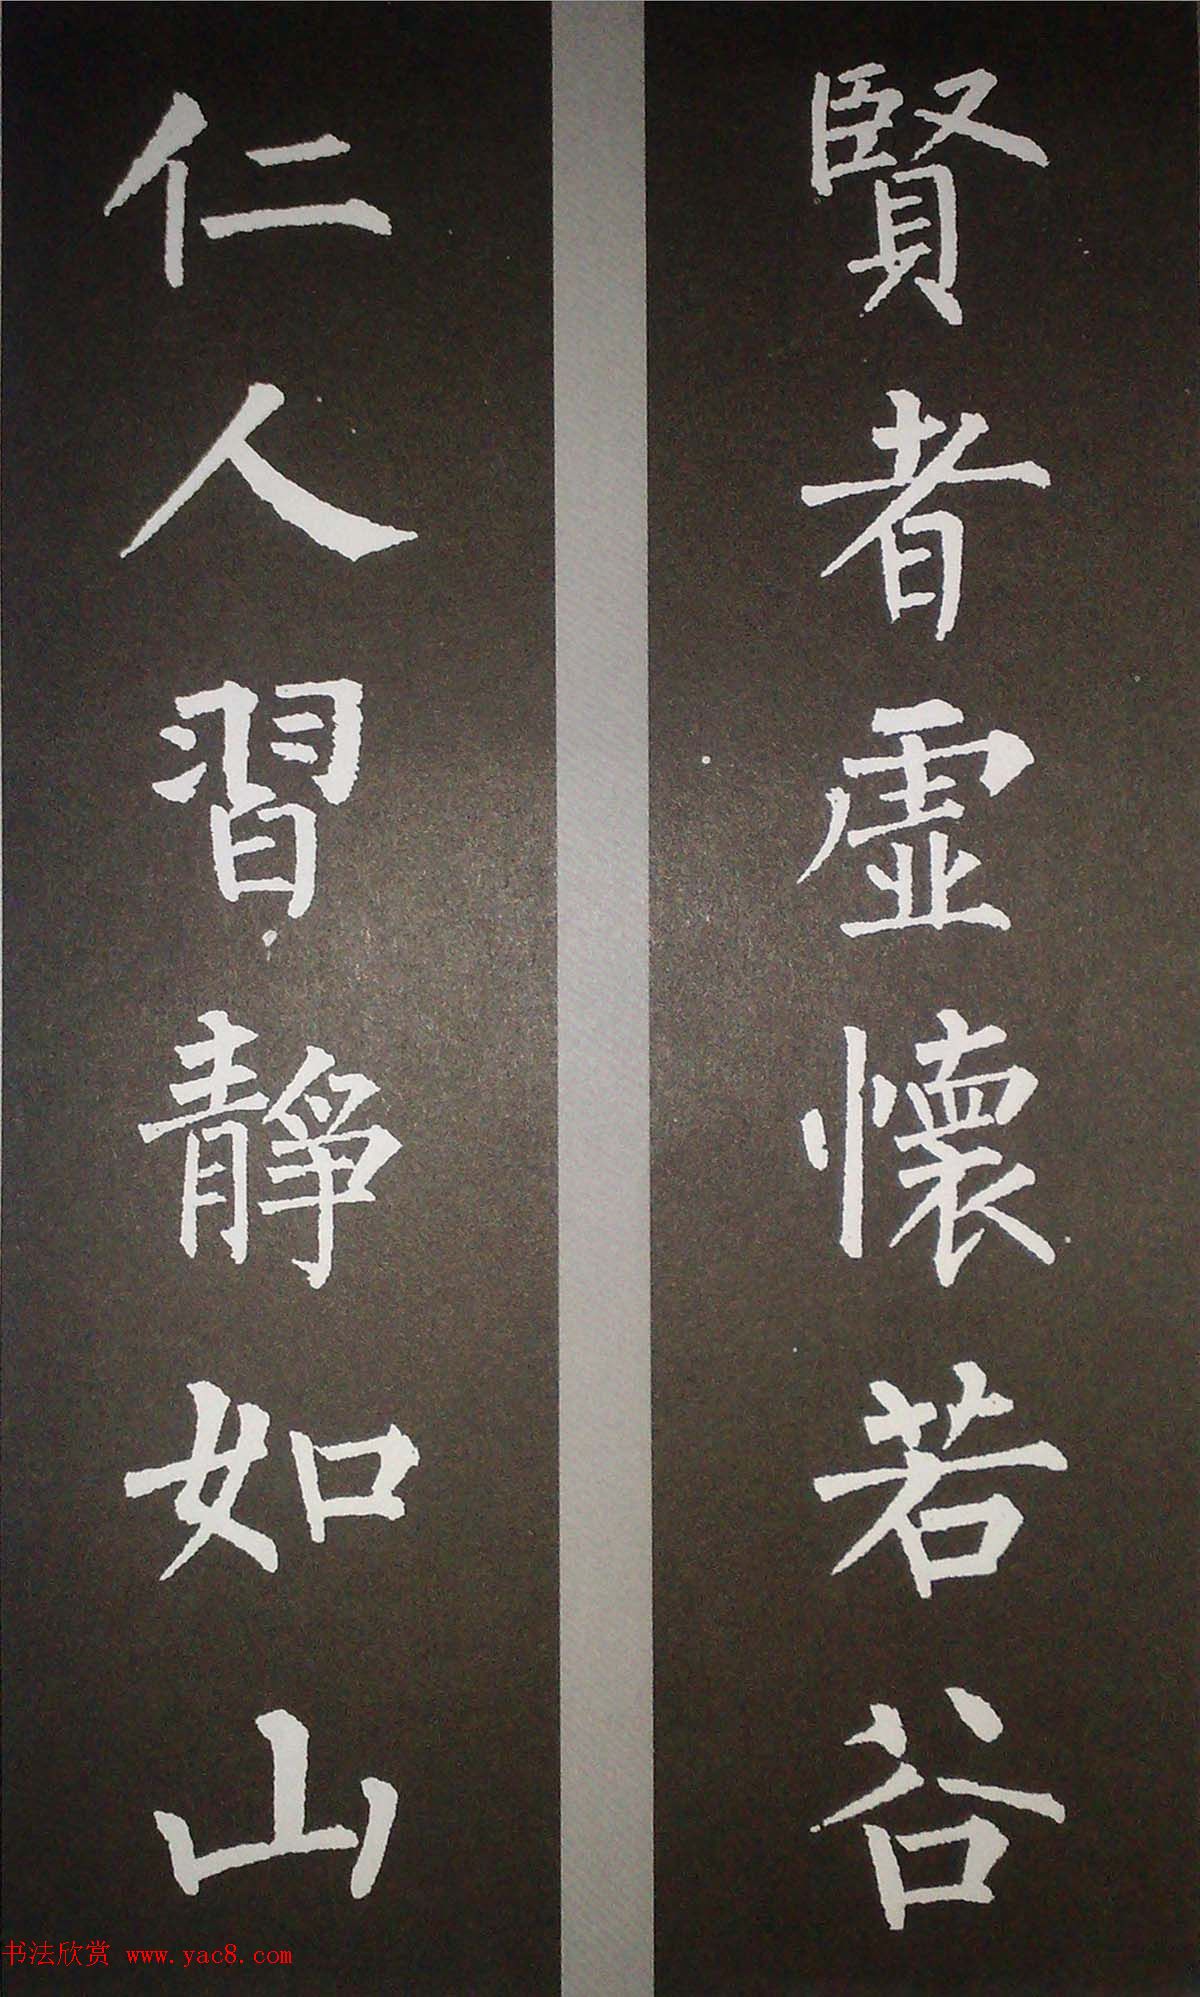 賢者虛懷若谷
仁人習靜如山
书法欣赏 www.yac8.com